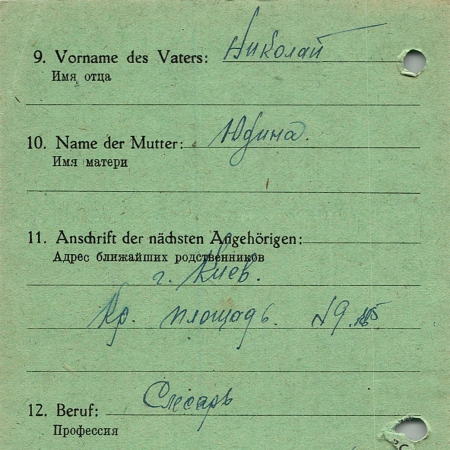 9. Vorname des Vaters: Николай
Имя отца
10. Name der Mutter: Юдина.
Имя матери
11. Anschrift der nächsten Angehörigen:
Адрес ближайших родственников
г. Киев.
Кр. площадь. N9
12. Beruf: Слесарь
Профессия